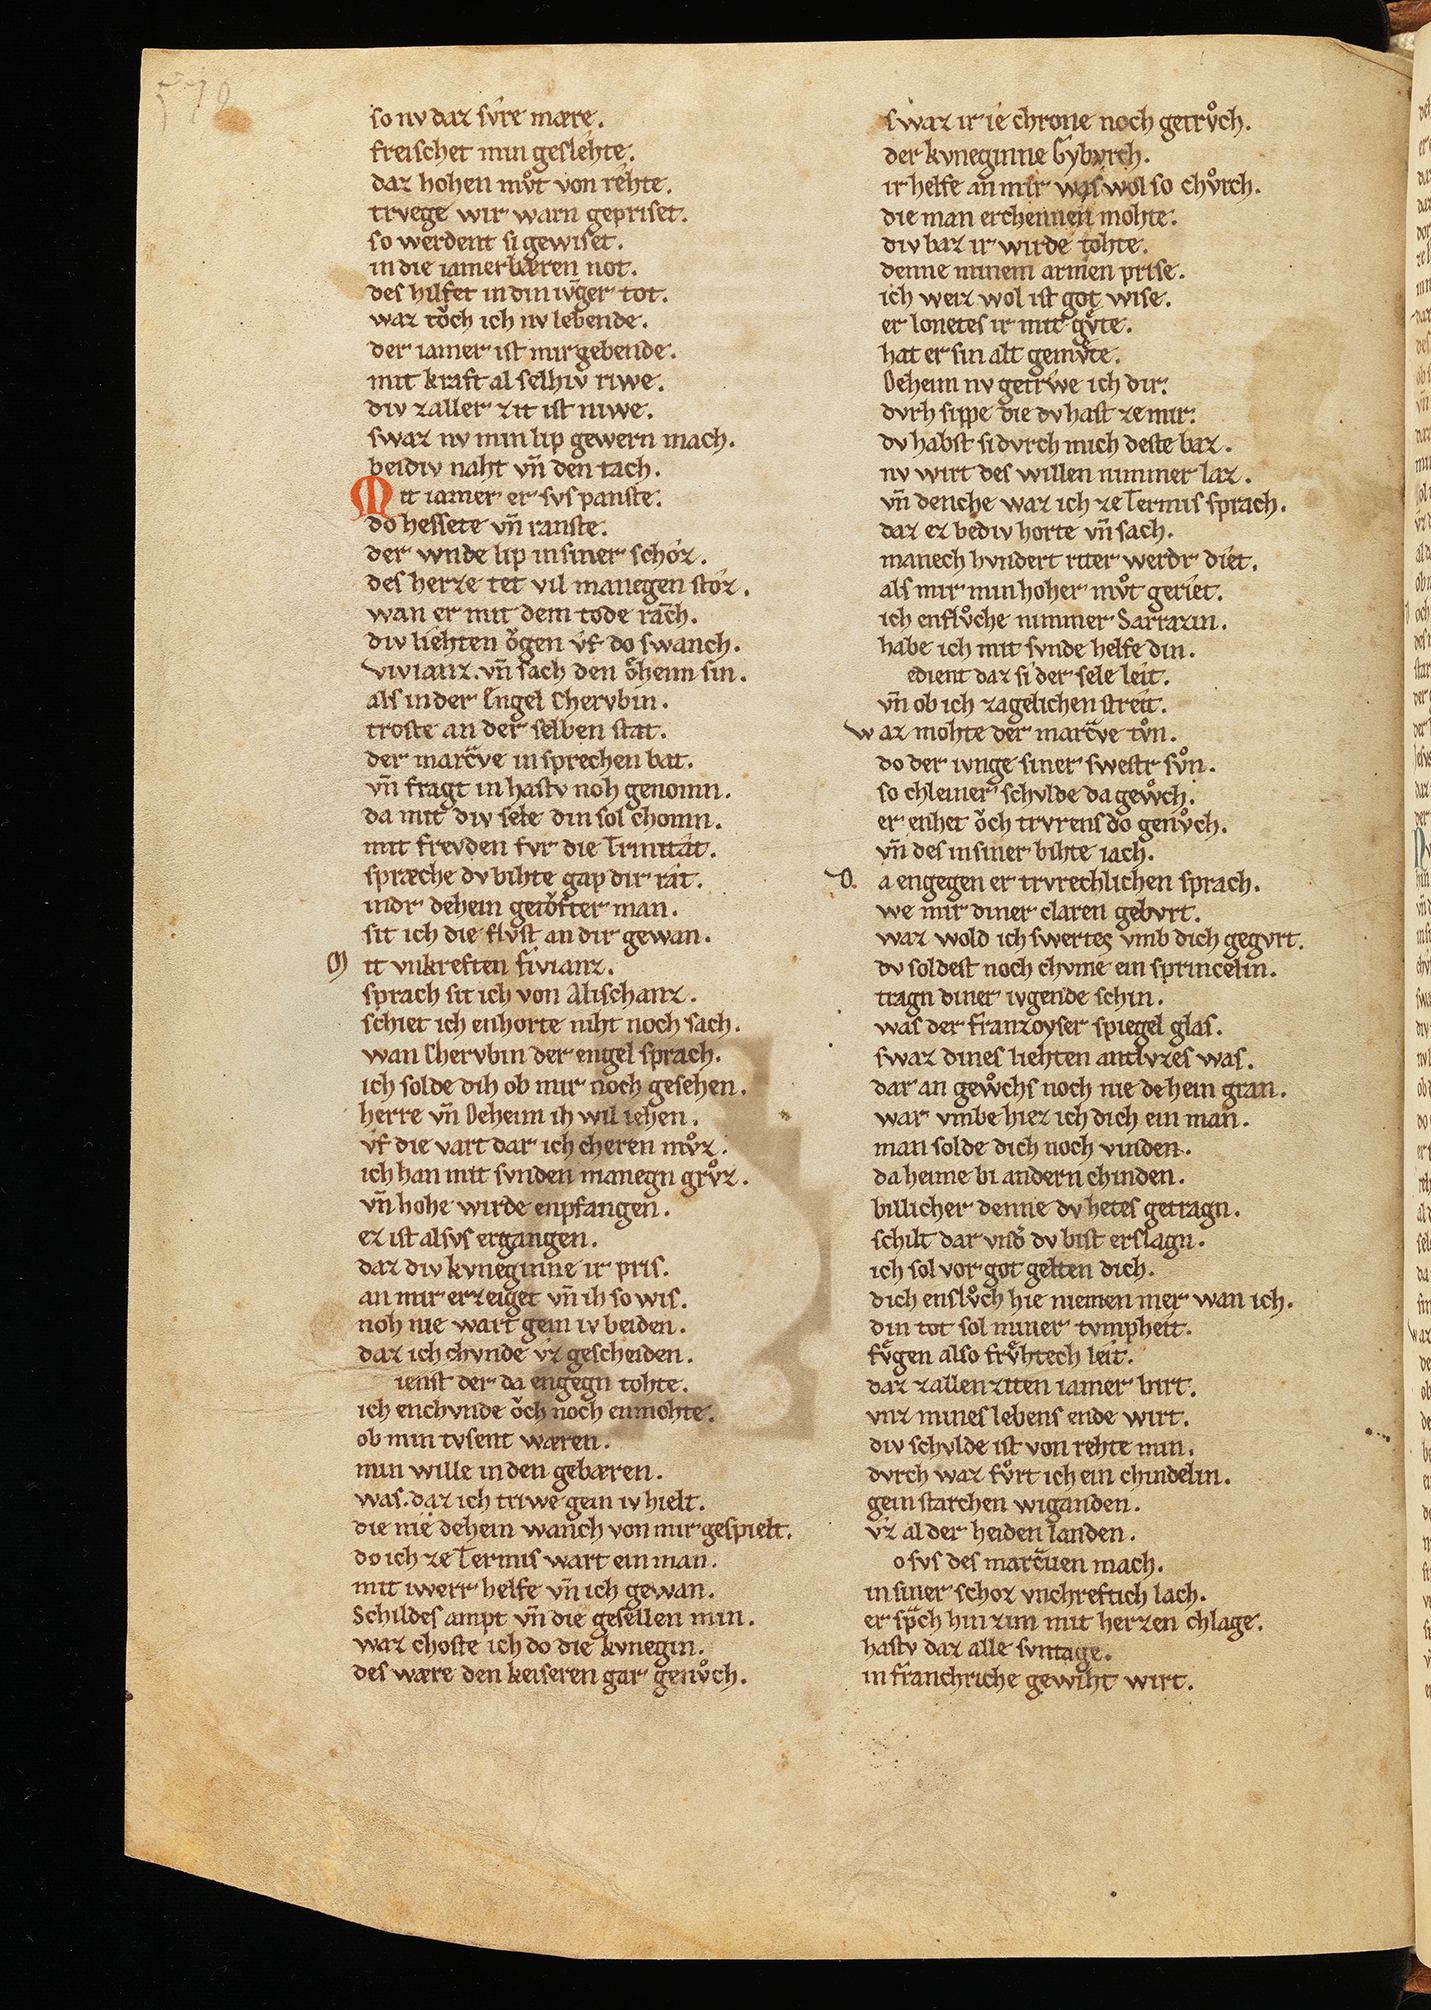 570
so nv daz svͤre mære.
freischet min geslehte.
daz hohen mvͦt von rehte.
trvege wir warn gepriset.
so werdent si gewiset.
in die iamerbæren not.
des hilfet in din ivnger tot.
waz tǒch ich nv lebende.
der iamer ist mir gebende.
mit kraft al selhiv riwe.
div zaller zit ist niwe.
swaz nv min lip gewern mach.
beidiv naht vn̄ den tach.
Mit iamer er svs panste.
do hessete vn̄ ranste.
der wnde lip in siner schoz.
des herze tet vil manegen stoz.
wan er mit dem tode ranch.
div liehten ǒgen vf do swanch.
vivianz. vn̄ sach den ǒheim sin.
als in der Engel Chervbin.
troste an der selben stat.
der marcͣve in sprechen bat.
vn̄ fragt in hastv noh genomn.
da mit div sele din sol chomn.
mit frevden fvr die Trinitat.
spræche dv bihte gap dir rat.
indr dehein getǒfter man.
sit ich die flvst an dir gewan.
Mit vnkreften fivianz.
sprach sit ich von Alischanz.
schiet ich enhorte niht noch sach.
wan Chervbin der engel sprach.
ich solde dih ob mir noch gesehen.
herre vn̄ Oeheim ih wil iehen.
vf die vart dar ich cheren mvͦz.
ich han mit svnden manegn grvͦz.
vn̄ hohe wirde enpfangen.
ez ist alsvs ergangen.
daz div kvneginne ir pris.
an mir erzeiget vn̄ ih so wis.
noh nie wart gein iv beiden.
daz ich chvnde vz gescheiden.
ienst der da engegn tohte.
ich enchvnde ǒch noch enmohte.
ob min tvsent wæren.
min wille in den gebæren.
was. daz ich triwe gein iv hielt.
die nie dehein wanch von mir gespielt.
do ich ze Termis wart ein man.
mit iwerr helfe vn̄ ich gewan.
Schildes ampt vn̄ die gesellen min.
waz choste ich do die kvnegin.
des wære den keiseren gar genvͦch.
swaz ir ie chrone noch getrvͦch.
der kvneginne Gybvrch.
ir helfe an mir was wol so chvͦrch.
die man erchennen mohte.
div baz ir wirde tohte.
denne minem armen prise.
ich weiz wol ist got wise.
er lonetes ir mit gvͤte.
hat er sin alt gemvͤte.
Oeheim nv getrwe ich dir.
dvrh sippe die dv hast ze mir.
dv habst si dvrch mich deste baz.
nv wirt des willen nimmer laz.
vn̄ denche waz ich ze Termis sprach.
daz ez bediv horte vn̄ sach.
manech hvndert riter werdr diet.
als mir min hoher mvͦt geriet.
ich enflvͦche nimmer Sarrazin.
habe ich mit svnde helfe din.
edient daz si der sele leit.
vn̄ ob ich zagelichen streit.
waz mohte der marcͣve tvͦn.
do der ivnge siner swestr svͦn.
so chleiner schvlde da gewͦch.
er enhet ǒch trvrens do genvͦch.
vn̄ des in siner bihte iach.
Da engegen er trvrechlichen sprach.
we mir diner claren gebvrt.
waz wold ich swertes vmb dich gegvrt.
dv soldest noch chvme ein sprincelin.
tragn diner ivgende schin.
was der franzoyser spiegel glas.
swaz dines liehten antlvzes was.
dar an gewͦchs noch nie dehein gran.
war vmbe hiez ich dich ein man.
man solde dich noch vinden.
da heime bi andern chinden.
billicher denne dv hetes getragn.
schilt dar vndr dv bist erslagn.
ich sol vor got gelten dich.
dich enslvͦch hie niemen mer wan ich.
din tot sol miner tvmpheit.
fvͤgen also frvͤhtech leit.
daz zallen ziten iamer birt.
vnz mines lebens ende wirt.
div schvlde ist von rehte min.
dvrch waz fvͦrt ich ein chindelin.
gein starchen wiganden.
vz al der heiden landen.
o svs des marcͣuen mach.
in siner schoz vnchreftich lach.
er spͣch hin zim mit herzen chlage.
hastv daz alle svntage.
in franchriche gewiht wirt.